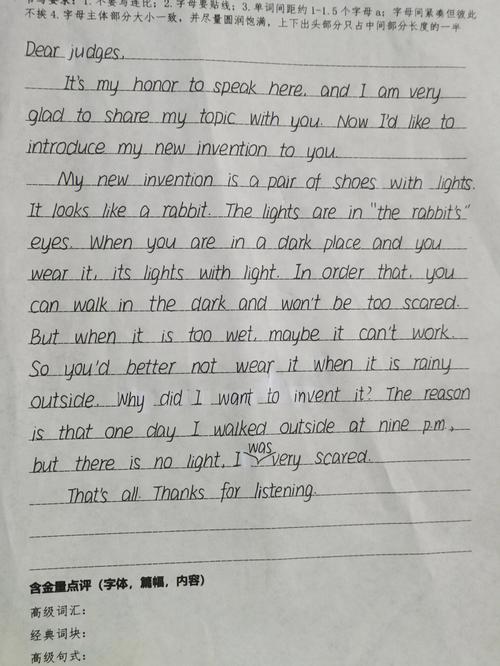 书写要求：1.不要写连比；2.字母要贴线；3.单词间距约1-1.5个字母a；字母间紧凑但彼此
不挨 4.字母主体部分大小一致，并尽量圆润饱满，上下出头部分只占中间部分长度的一半
Dear judges,
It's my honor to speak here, and I am very
glad to share my topic with you. Now I'd like to
introduce my new invention to you.
My new invention is a pair of shoes with lights.
It looks like a rabbit. The lights are in "the rabbit's"
eyes. When you are in a dark place and you
wear it, its lights with light. In order that, you
can walk in the dark and won't be too scared.
But when it is too wet, maybe it can't work.
So you'd better not wear it when it is rainy
outside. Why did I want to invent it? The reason
is that one day I walked outside at nine p.m.,
but there is no light, I was very scared.
That's all. Thanks for listening.
含金量点评（字体，篇幅，内容）
高级词汇：
经典词块：
高级句式：